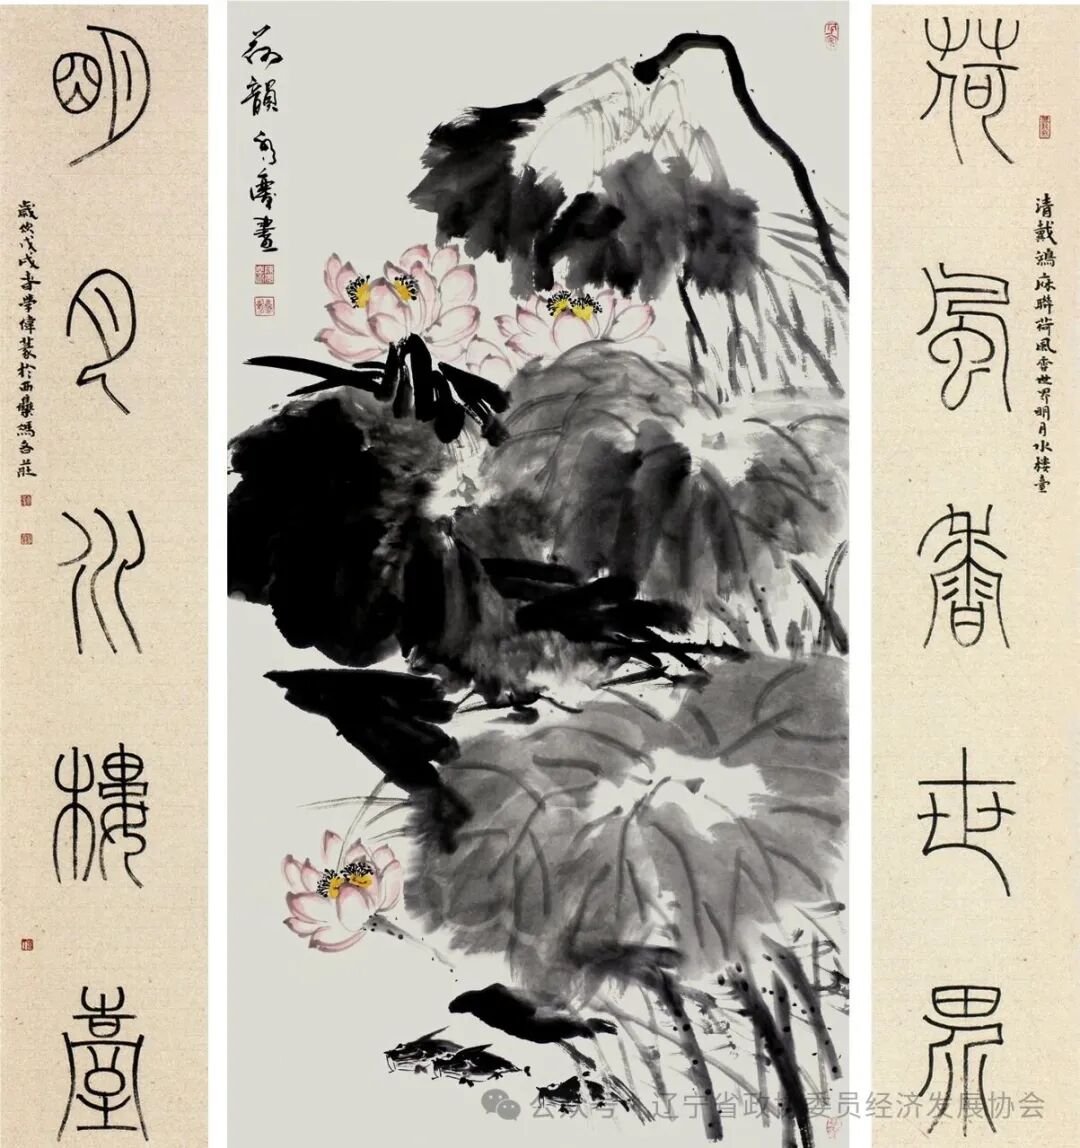 荷風香世界
清戴鴻庥聯荷風香世界明月水樓臺
荷韻 畫
明月水樓臺
歲次戊戌春學偉篆於西
公众号 · 辽宁省政协委员经济发展协会